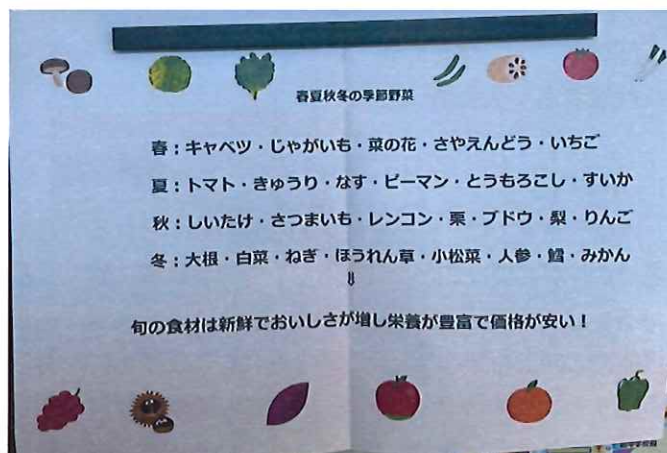 春夏秋冬の季節野菜
春：キャベツ・じゃがいも・菜の花・さやえんどう・いちご
夏：トマト・きゅうり・なす・ピーマン・とうもろこし・すいか
秋：しいたけ・さつまいも・レンコン・栗・ブドウ・梨・りんご
冬：大根・白菜・ねぎ・ほうれん草・小松菜・人参・鱈・みかん
⇓
旬の食材は新鮮でおいしさが増し栄養が豊富で価格が安い！